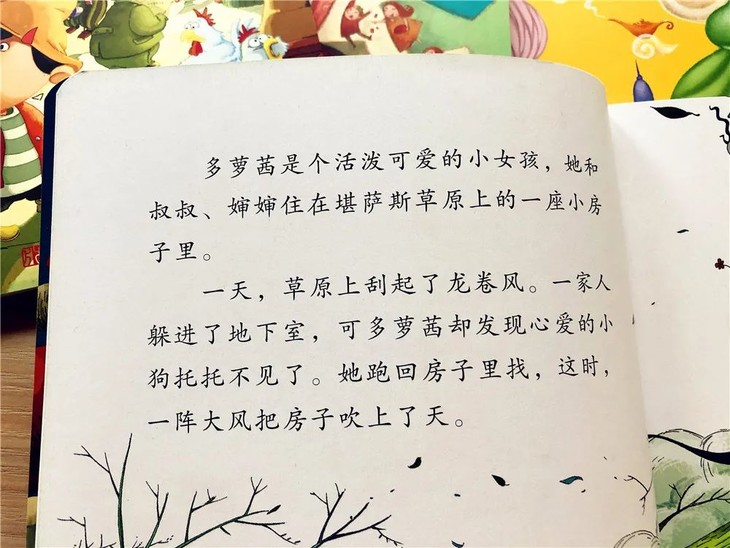 多萝茜是个活泼可爱的小女孩，她和
叔叔、婶婶住在堪萨斯草原上的一座小房
子里。
一天，草原上刮起了龙卷风。一家人
躲进了地下室，可多萝茜却发现心爱的小
狗托托不见了。她跑回房子里找，这时，
一阵大风把房子吹上了天。